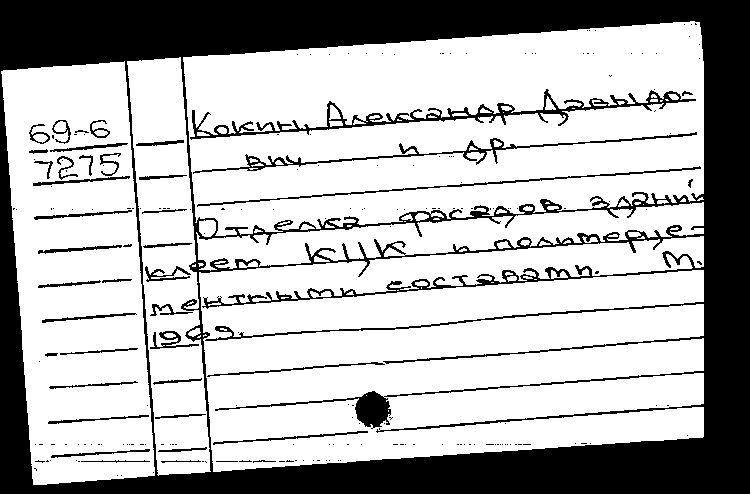 69-6
7275
Кокин, Александр Давыдо-
вич и др.
Отделка фасадов зданий
клеем КЦК и полимерце-
ментными составами. М.
1969.